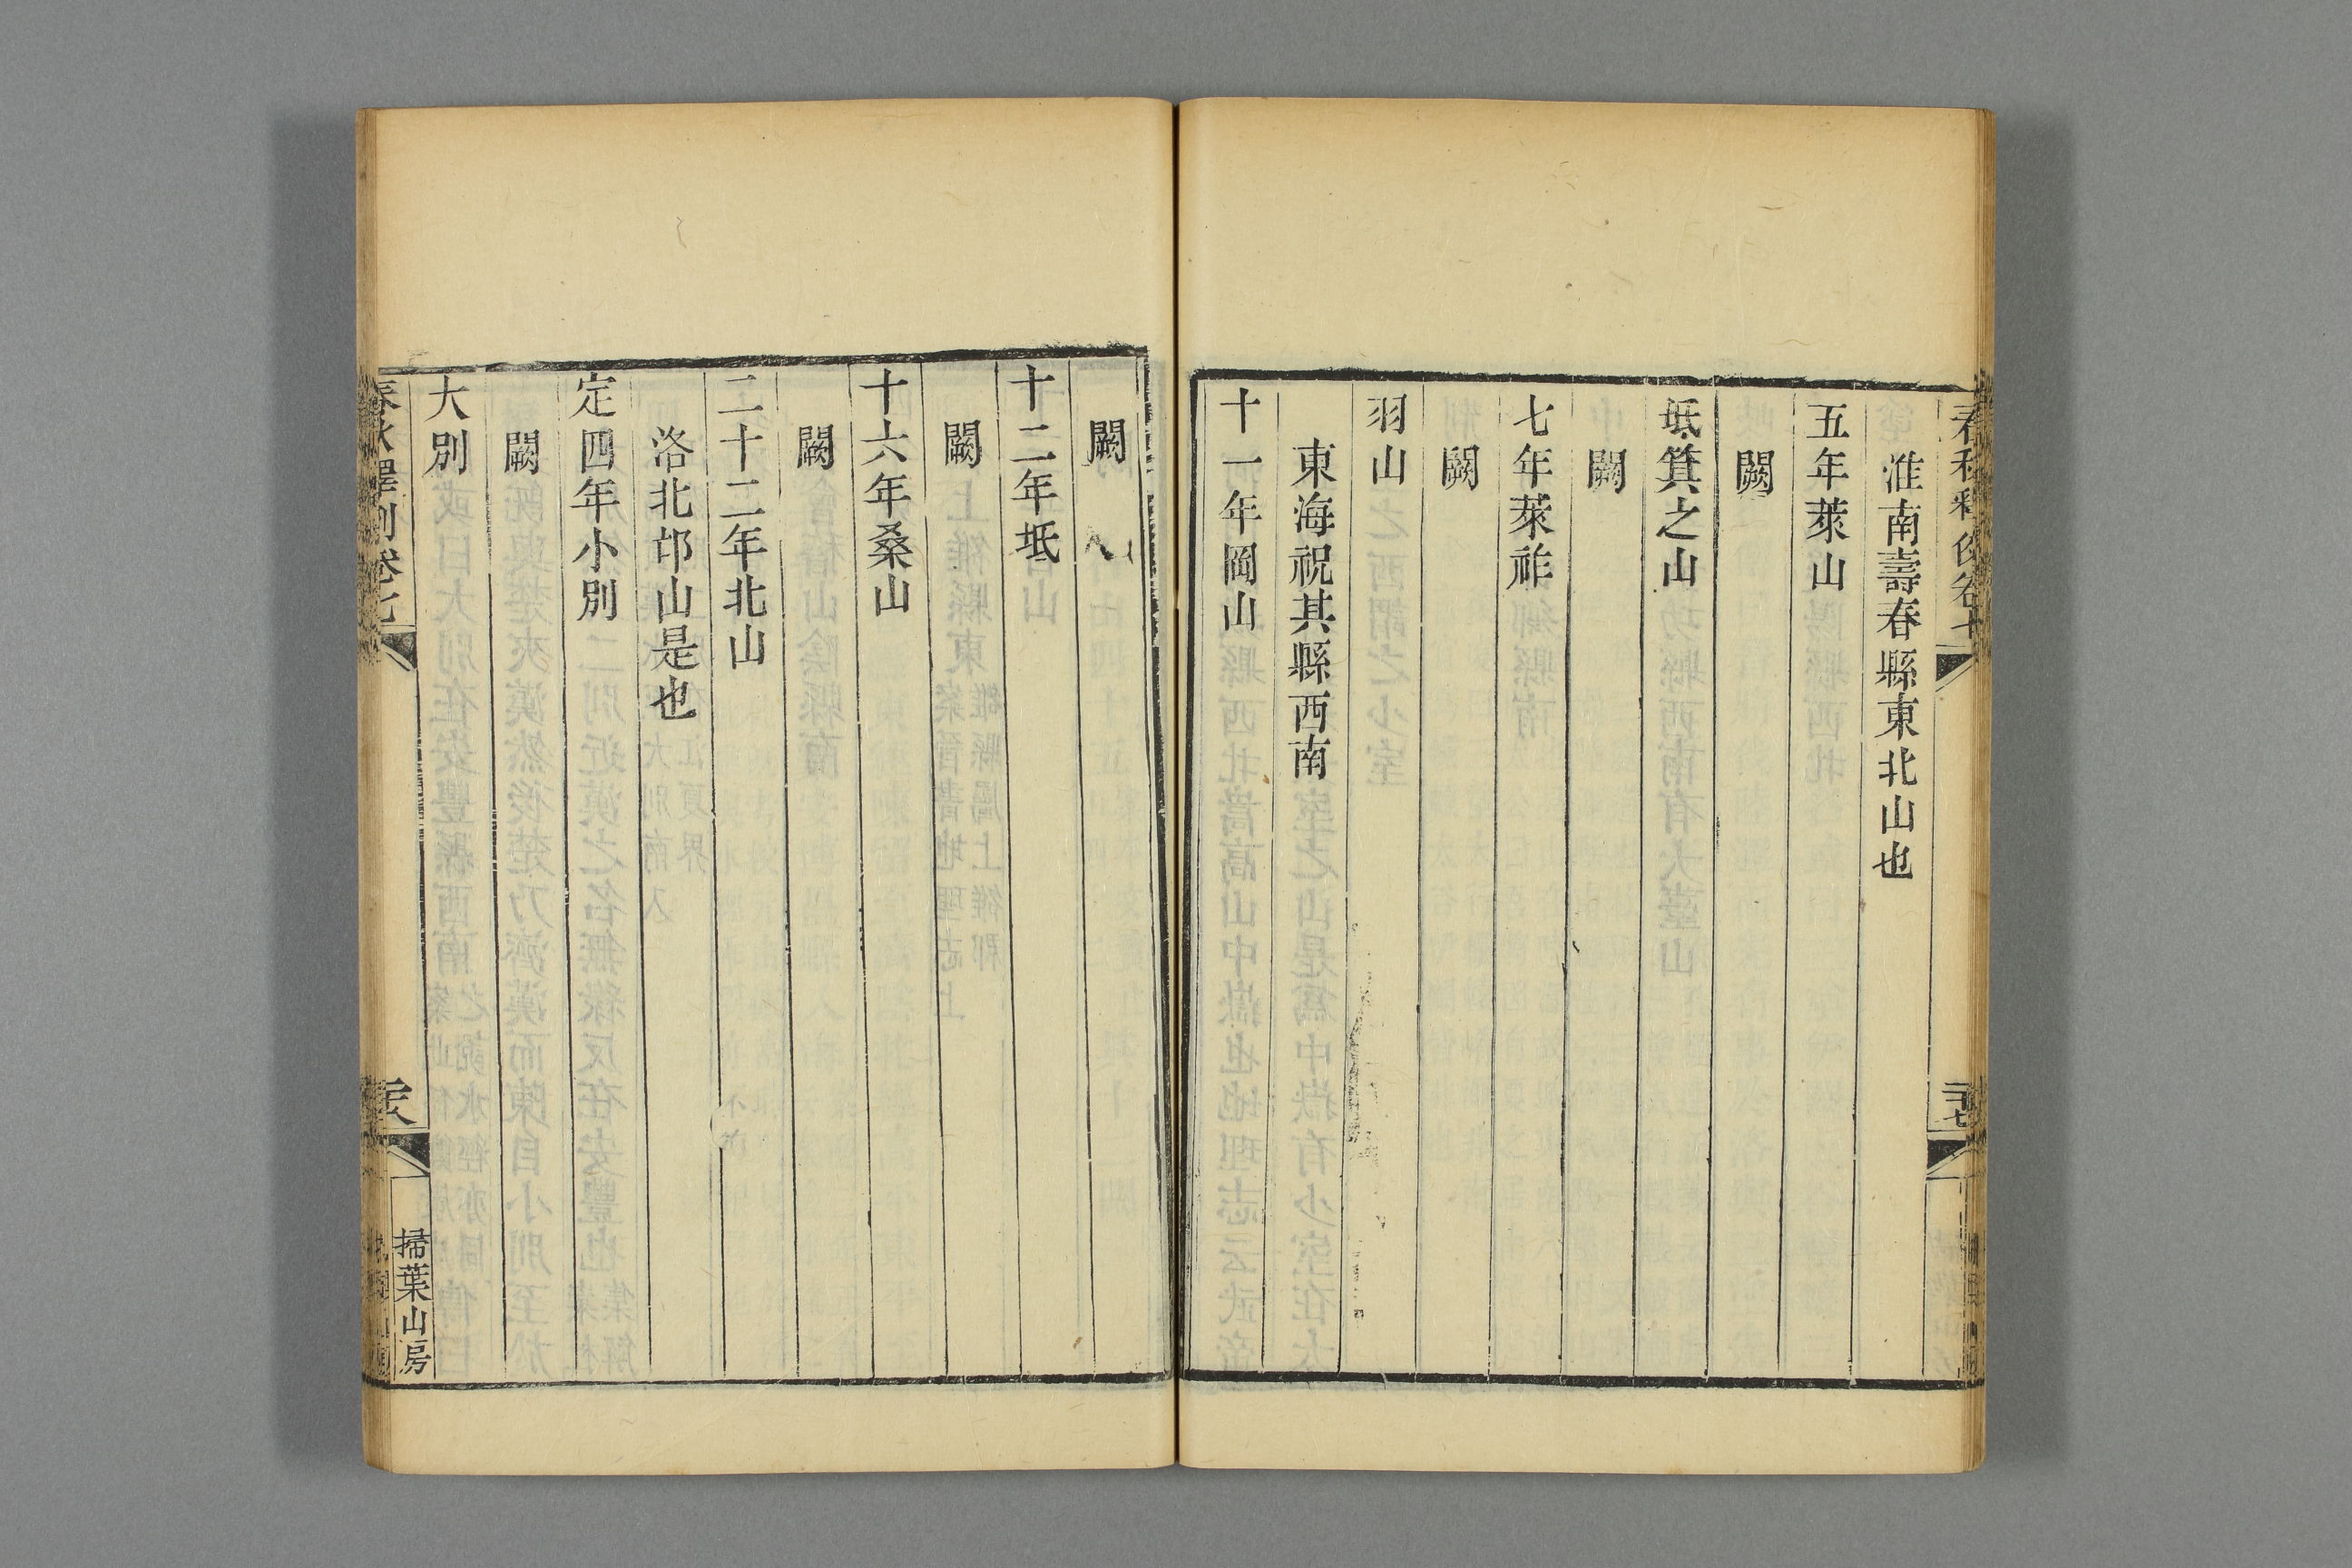 淮南壽春縣東北山也
五年萊山
闕
坻箕之山
闕
七年萊祚
闕
羽山
東海祝其縣西南
十一年岡山
闕
十二年坻
闕
十六年桑山
闕
二十二年北山
洛北邙山是也
定四年小別
闕
大別
春秋釋例卷七
掃葉山房